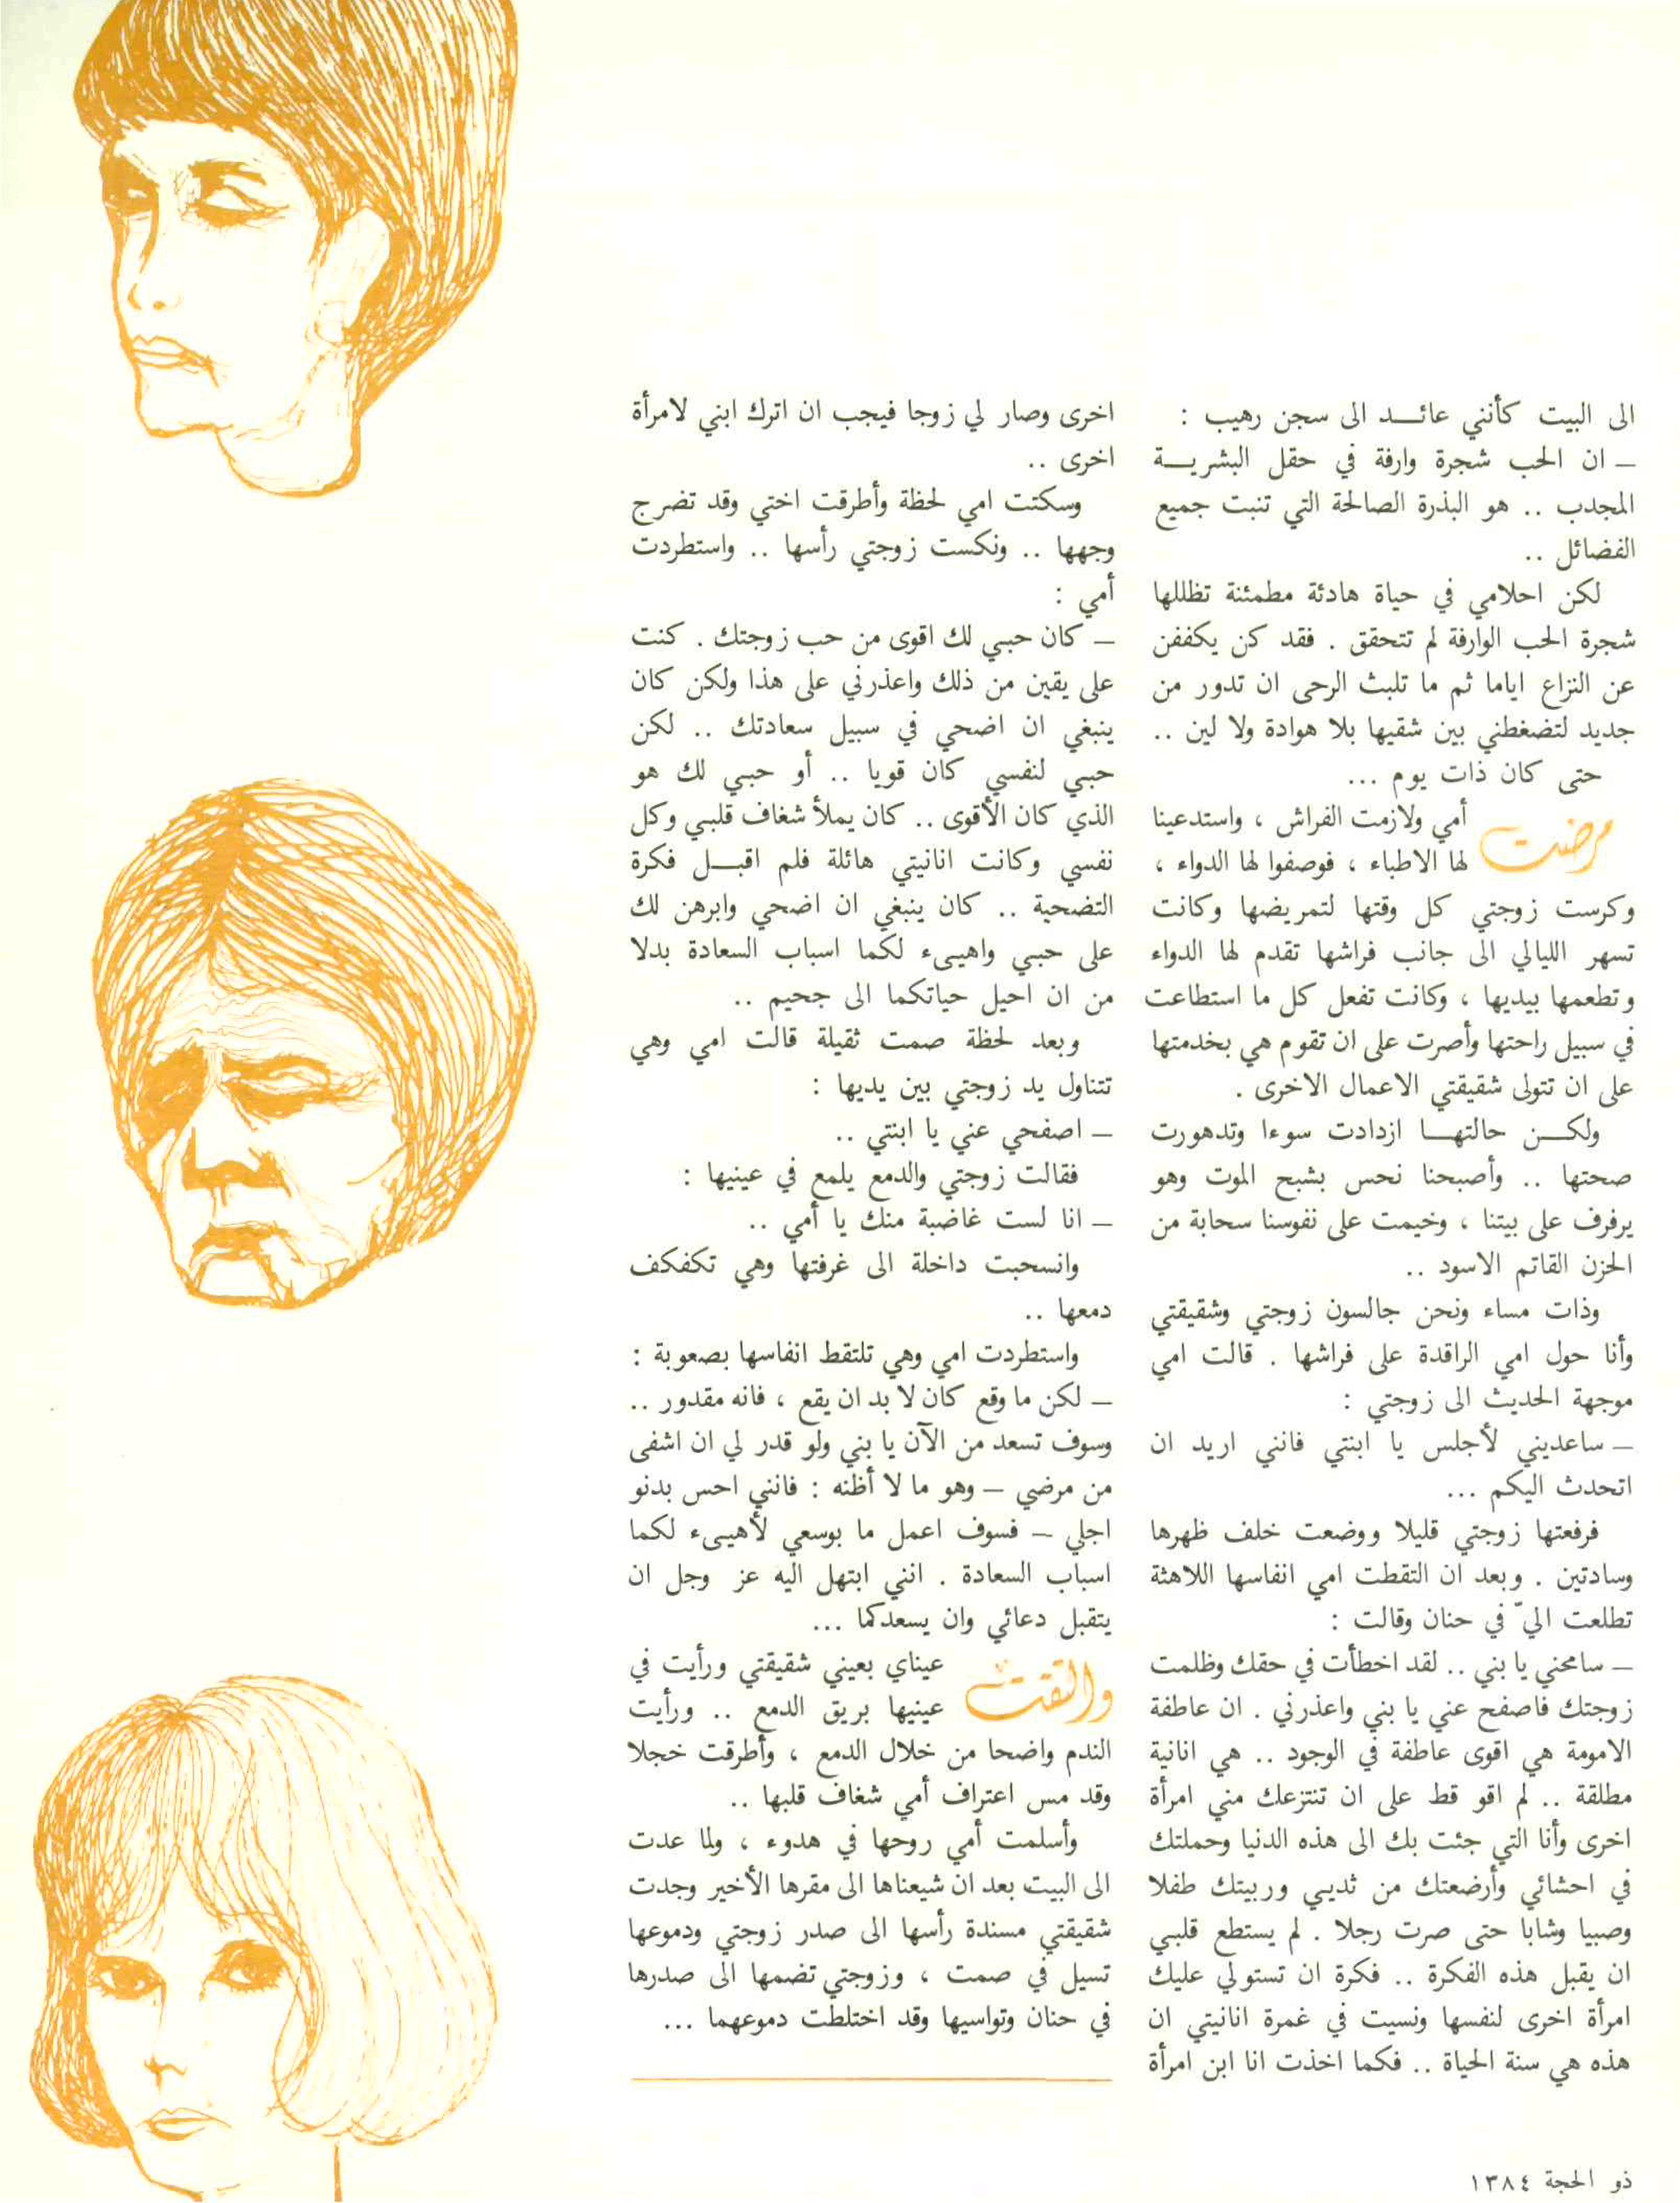 الى البيت كأنني عائـــد الى سجن رهيب :
ـ ان الحب شجرة وارفة في حقل البشريـــة
المجدب .. هو البذرة الصالحة التي تنبت جميع
الفضائل ..
لكن احلامي في حياة هادئة مطمئنة تظللها
شجرة الحب الوارفة لم تتحقق . فقد كن يكففن
عن النزاع اياما ثم ما تلبث الرحى ان تدور من
جديد لتضغطني بين شقيها بلا هوادة ولا لين ..
حتى كان ذات يوم ...
مرضت أمي ولازمت الفراش ، واستدعينا
لها الاطباء ، فوصفوا لها الدواء ،
وكرست زوجتي كل وقتها لتمريضها وكانت
تسهر الليالي الى جانب فراشها تقدم لها الدواء
وتطعمها بيديها ، وكانت تفعل كل ما استطاعت
في سبيل راحتها وأصرت على ان تقوم هي بخدمتها
على ان تتولى شقيقتي الاعمال الاخرى .
ولكـــن حالتهـــا ازدادت سوءا وتدهورت
صحتها .. وأصبحنا نحس بشبح الموت وهو
يرفرف على بيتنا ، وخيمت على نفوسنا سحابة من
الحزن القاتم الاسود ..
وذات مساء ونحن جالسون زوجتي وشقيقتي
وأنا حول امي الراقدة على فراشها . قالت امي
موجهة الحديث الى زوجتي :
ـ ساعديني لأجلس يا ابنتي فانني اريد ان
اتحدث اليكم ...
فرفعتها زوجتي قليلا ووضعت خلف ظهرها
وسادتين . وبعد ان التقطت امي انفاسها اللاهثة
تطلعت اليّ في حنان وقالت :
ـ سامحني يا بني .. لقد اخطأت في حقك وظلمت
زوجتك فاصفح عني يا بني واعذرني . ان عاطفة
الامومة هي اقوى عاطفة في الوجود .. هي انانية
مطلقة .. لم اقو قط على ان تنتزعك مني امرأة
اخرى وأنا التي جئت بك الى هذه الدنيا وحملتك
في احشائي وأرضعتك من ثديـي وربيتك طفلا
وصبيا وشابا حتى صرت رجلا . لم يستطع قلبـي
ان يقبل هذه الفكرة .. فكرة ان تستولي عليك
امرأة اخرى لنفسها ونسيت في غمرة انانيتي ان
هذه هي سنة الحياة .. فكما اخذت انا ابن امرأة
اخرى وصار لي زوجا فيجب ان اترك ابني لامرأة
اخرى ..
وسكتت امي لحظة وأطرقت اختي وقد تضرج
وجهها .. ونكست زوجتي رأسها .. واستطردت
أمي :
ـ كان حبـي لك اقوى من حب زوجتك . كنت
على يقين من ذلك واعذرني على هذا ولكن كان
ينبغي ان اضحي في سبيل سعادتك .. لكن
حبـي لنفسي كان قويا .. أو حبـي لك هو
الذي كان الأقوى .. كان يملأ شغاف قلبـي وكل
نفسي وكانت انانيتي هائلة فلم اقبـــل فكرة
التضحية .. كان ينبغي ان اضحي وابرهن لك
على حبـي واهيـىء لكما اسباب السعادة بدلا
من ان احيل حياتكما الى جحيم ..
وبعد لحظة صمت ثقيلة قالت امي وهي
تتناول يد زوجتي بين يديها :
ـ اصفحي عني يا ابنتي ..
فقالت زوجتي والدمع يلمع في عينيها :
ـ انا لست غاضبة منك يا أمي ..
وانسحبت داخلة الى غرفتها وهي تكفكف
دمعها ..
واستطردت امي وهي تلتقط انفاسها بصعوبة :
ـ لكن ما وقع كان لا بد ان يقع ، فانه مقدور ..
وسوف تسعد من الآن يا بني ولو قدر لي ان اشفى
من مرضي ـ وهو ما لا أظنه : فانني احس بدنو
اجلي ـ فسوف اعمل ما بوسعي لأهيـىء لكما
اسباب السعادة . انني ابتهل اليه عز وجل ان
يتقبل دعائي وان يسعدكما ...
والتقت عيناي بعيني شقيقتي ورأيت في
عينيها بريق الدمع .. ورأيت
الندم واضحا من خلال الدمع ، وأطرقت خجلا
وقد مس اعتراف أمي شغاف قلبها ..
وأسلمت أمي روحها في هدوء ، ولما عدت
الى البيت بعد ان شيعناها الى مقرها الأخير وجدت
شقيقتي مسندة رأسها الى صدر زوجتي ودموعها
تسيل في صمت ، وزوجتي تضمها الى صدرها
في حنان وتواسيها وقد اختلطت دموعهما ...
ذو الحجة ١٣٨٤